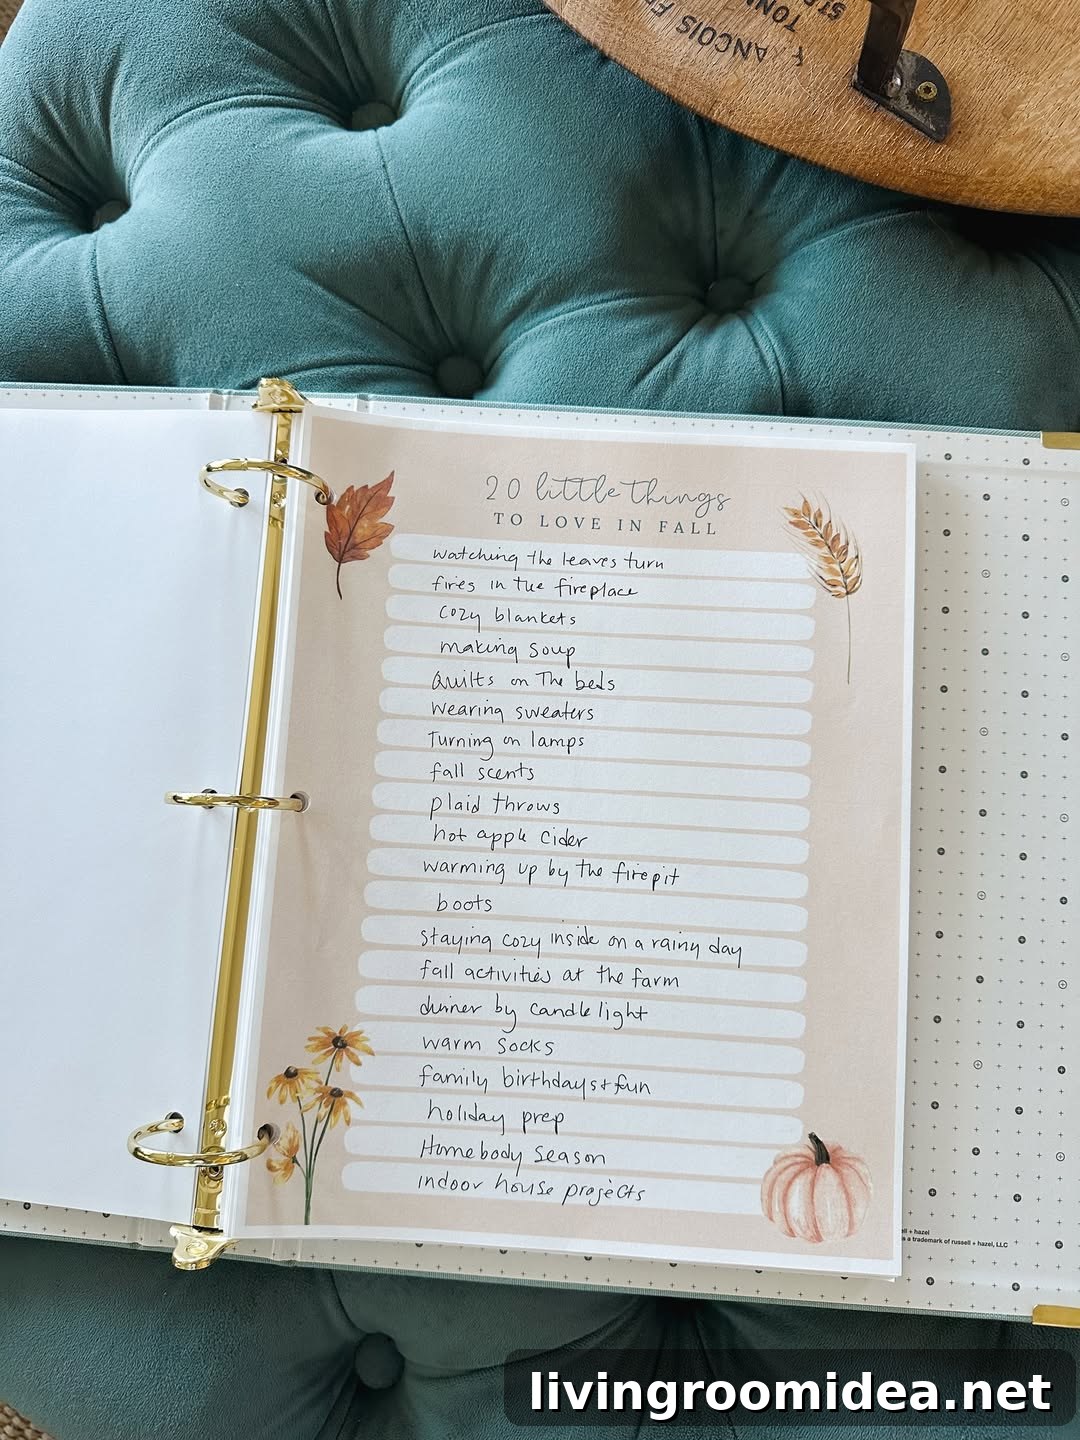 ANCOIS FR
TON
ST
20 little things
TO LOVE IN FALL
watching the leaves turn
fires in the fireplace
cozy blankets
making soup
Quilts on The beds
wearing sweaters
Turning on lamps
fall scents
plaid throws
hot apple cider
warming up by the firepit
boots
staying cozy inside on a rainy day
fall activities at the farm
dinner by candlelight
warm socks
family birthdays + fun
holiday prep
Homebody season
indoor house projects
ell + hazel
s a trademark of russell + hazel, LLC
livingroomidea.net